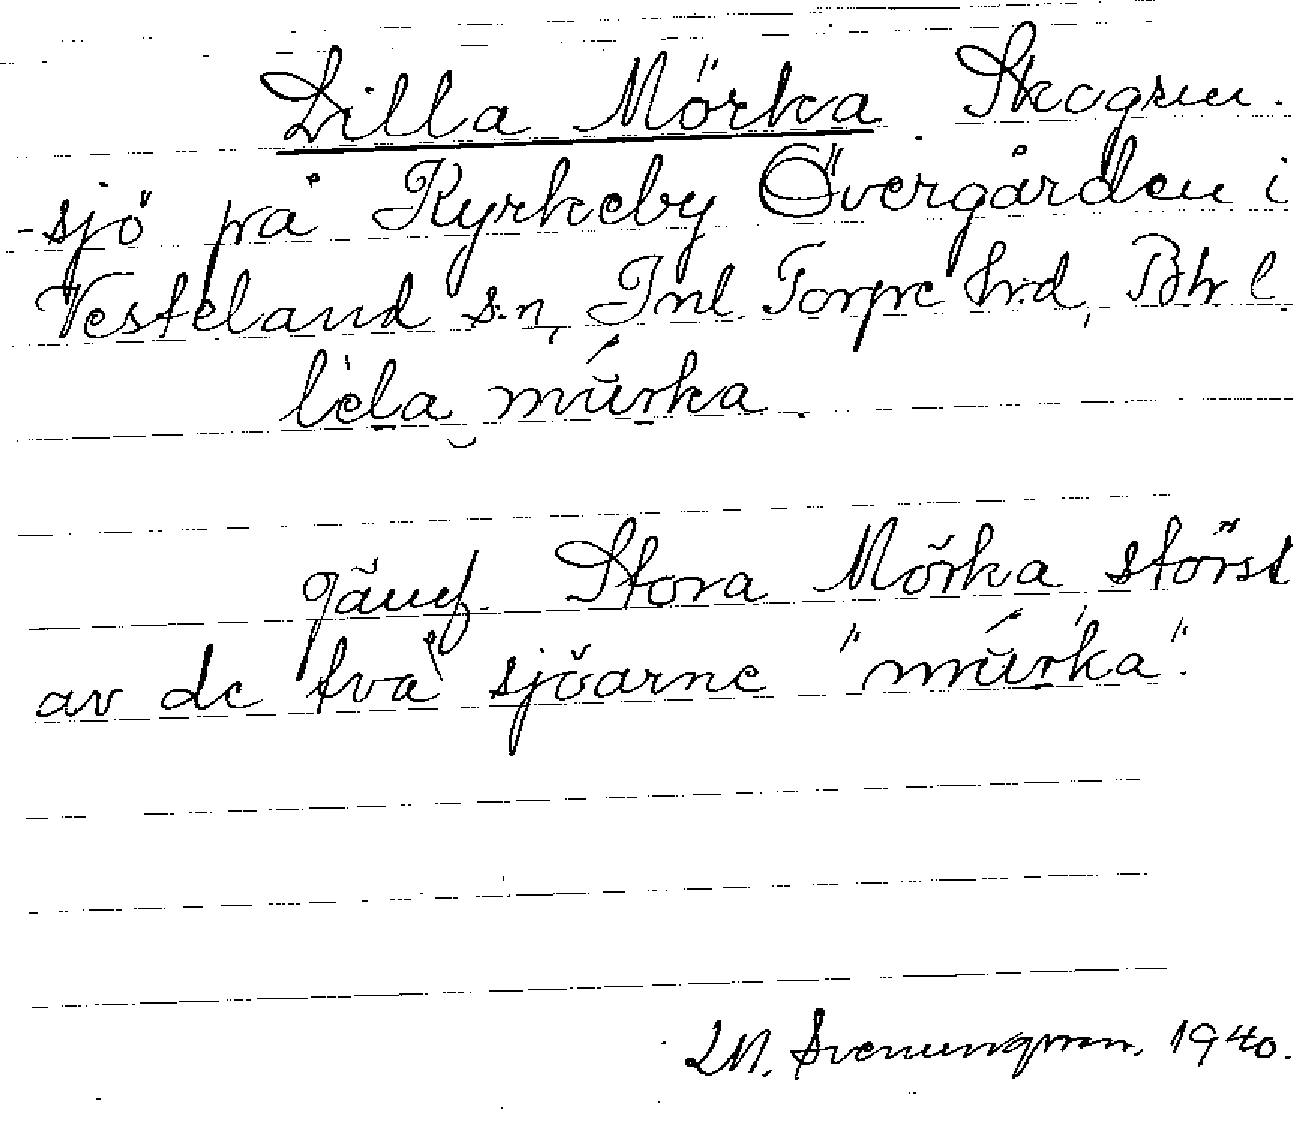 Lilla Mörka. Skogsu.
-sjö på Kyrkeby Övergården i
Vesteland s:n, Inl Torpe hrd, Bhl
lela mürka.
Jämf. Stora Mörka störst
av de två sjöarne "mürka".
LM. Svenungsson. 1940.